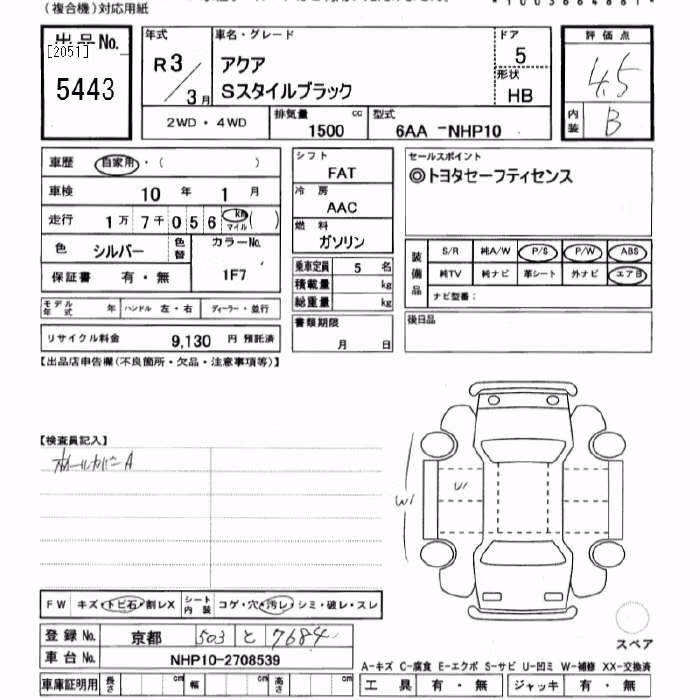 (複合機)対応用紙
出品No.
[2051]
5443
年式
R3/3月
車名・グレード
アクア
Sスタイルブラック
ドア
5
形状
HB
評価点
4.5
内装
B
2WD・4WD
排気量
1500 cc
型式
6AA -NHP10
車歴 自家用・( )
車検 10年 1月
走行 1万7千056 km マイル ( )
色 シルバー 色替
カラーNo.
1F7
保証書 有・無
モデル年式 年 ハンドル 左・右 ディーラー・並行
リサイクル料金 9,130 円 預託済
シフト
FAT
冷房
AAC
燃料
ガソリン
乗車定員 5 名
積載量 kg
総重量 kg
書類期限
月 日
セールスポイント
◎トヨタセーフティセンス
装備品
S/R 純A/W P/S P/W ABS
純TV 純ナビ 革シート 外ナビ エアB
ナビ型番:
後日品
【出品店申告欄(不良箇所・欠品・注意事項等)】
【検査員記入】
ホイールカバーA
W1
U1
FW キズ・トビ石・割レX シート内装 コゲ・穴・汚レ・シミ・破レ・スレ
登録No. 京都 503 と 7684
車台No. NHP10-2708539
車庫証明用 長さ cm 幅 cm 高さ cm
スペア
A-キズ C-腐食 E-エクボ S-サビ U-凹ミ W-補修 XX-交換済
工具 有・無 ジャッキ 有・無